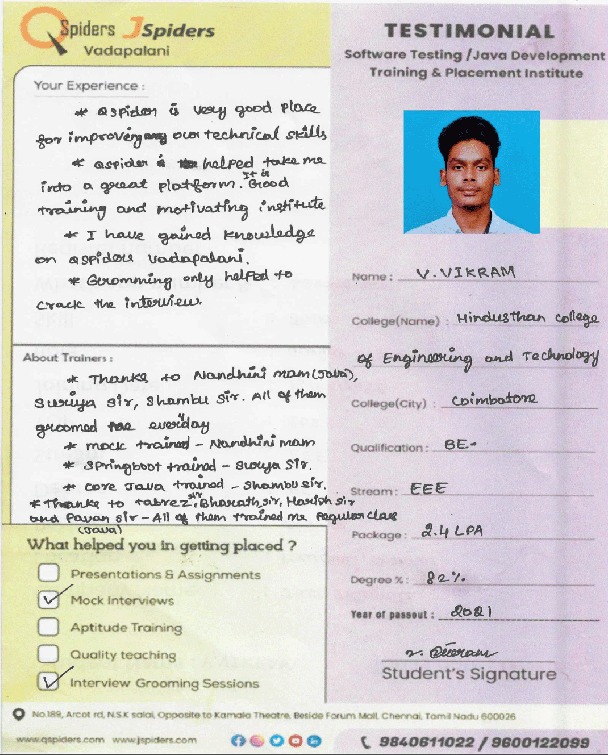 QSpiders JSpiders
Vadapalani
TESTIMONIAL
Software Testing /Java Development
Training & Placement Institute
Your Experience :
* Qspider is very good place
for improvering our technical skills
* Qspider is helped take me
into a great platform. It is Good
training and motivating institute
* I have gained knowledge
on Qspiders Vadapalani.
* Gromming only helped to
crack the interview.
About Trainers :
* Thanks to Nandhini mam (Java),
Suriya Sir, Shambu Sir. All of them
groomed me everyday
* mock trained - Nandhini mam
* Springboot trained - Suriya Sir.
* Core Java trained - Shambu sir.
* Thanks to tabrez sir, Bharath sir, Harish sir
and Pavan sir - All of them trained me Regular class
(Java)
What helped you in getting placed ?
Presentations & Assignments
Mock Interviews
Aptitude Training
Quality teaching
Interview Grooming Sessions
Name : V. VIKRAM
College(Name) : Hindusthan college
of Engineering and Technology
College(City) : Coimbatore
Qualification : BE-
Stream : EEE
Package : 2.4 LPA
Degree % : 82%
Year of passout : 2021
Student's Signature
No.189, Arcot rd, N.S.K salai, Opposite to Kamala Theatre, Beside Forum Mall, Chennai, Tamil Nadu 600026
www.qspiders.com www.jspiders.com
9840611022 / 9600122099